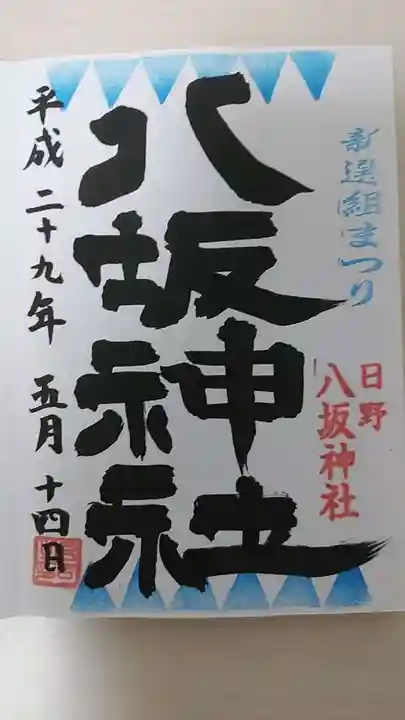 新選組まつり
日野
八坂神社
八坂神社
平成二十九年 五月 十四日